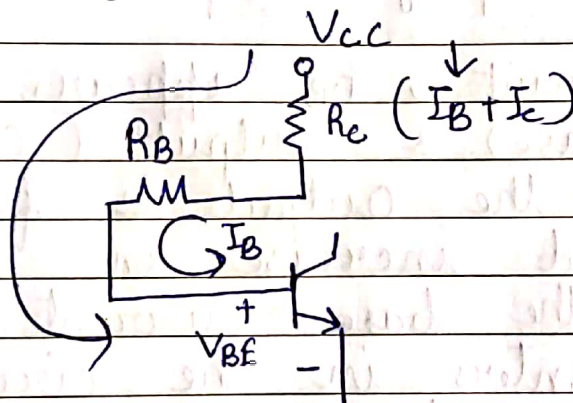 VCC
RC (IB + IC)
RB
IB
+
VBE
-